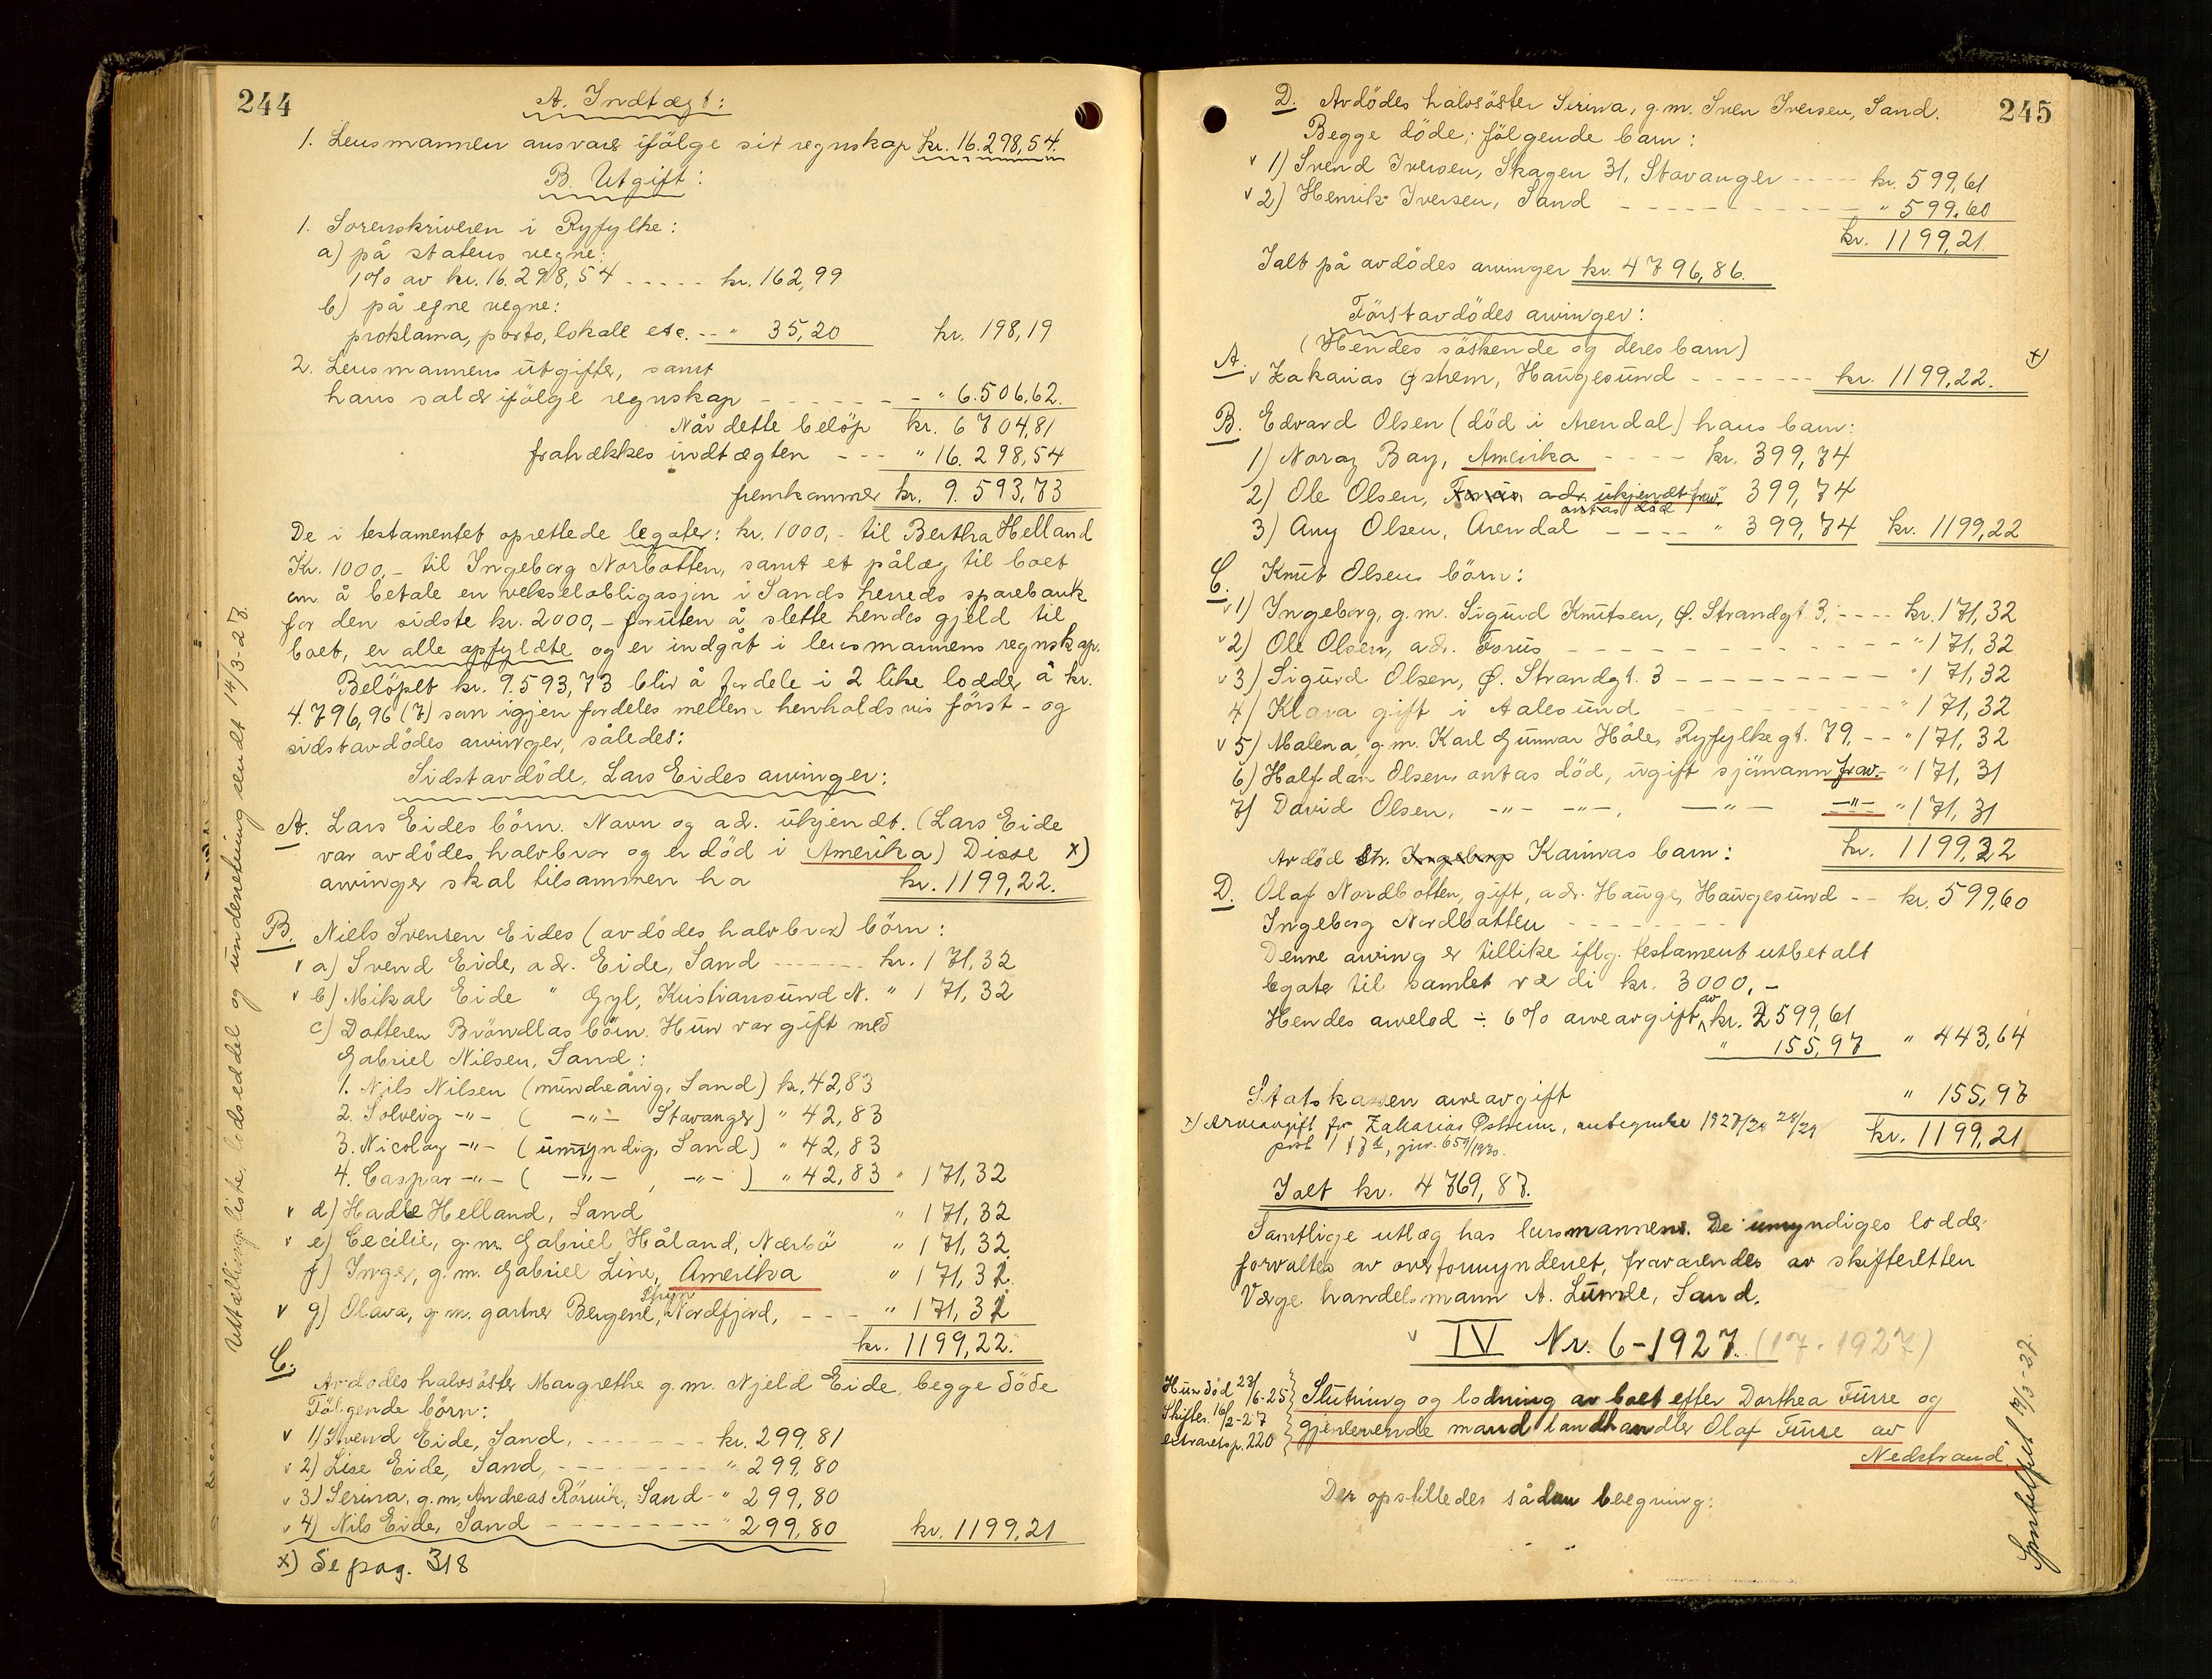 244
A. Indtægt:
1. Lensmannen ansvarer ifölge sit regnskap kr. 16.298,54.
B. Utgift:
1. Sorenskriveren i Ryfylke:
a) på statens vegne:
1% av kr. 16.298,54 ..... kr. 162,99
b) på egne vegne:
proklama, porto, lokale etc. -- " 35,20 kr. 198,19
2. Lensmannens utgifter, samt
hans salær ifölge regnskap - - - - - - " 6.506,62.
Når dette belöp kr. 6704,81
fratrækkes indtægten --- " 16.298,54
fremkommer kr. 9.593,73
De i testamentet oprettede legater: kr. 1000,- til Bertha Helland
Kr. 1000,- til Ingeborg Norbotten, samt et pålæg til boet
om å betale en vekselobligasjon i Sands herreds sparebank
for den sidste kr. 2000,- foruten å slette hendes gjeld til
boet, er alle opfyldte og er indgåt i lensmannens regnskap.
Belöpet kr. 9.593,73 blir å fordele i 2 like lodder å kr.
4.796,96 (7) som igjen fordeles mellem henholdsvis först- og
sidstavdödes arvinger, således:
Sidstavdöde, Lars Eides arvinger:
A. Lars Eides börn. Navn og adr. ukjendt. (Lars Eide
var avdödes halvbror og er död i Amerika) Disse x)
arvinger skal tilsammen ha kr. 1199,22.
B. Niels Svensen Eides (avdödes halvbror) börn:
v a) Svend Eide, adr. Eide, Sand ------- kr. 171,32
v b) Mikal Eide " Gyl, Kristiansund N. " 171,32
c) Datteren Bröndlas börn. Hun var gift med
Gabriel Nilsen, Sand:
1. Nils Nilsen (mindreårig, Sand) kr. 42,83
2. Solveig -"- ( -"- Stavanger) " 42,83
3. Nicolay -"- (umyndig, Sand) " 42,83
4. Caspar -"- ( -"- , -"- ) " 42,83 " 171,32
v d) Hadle Helland, Sand " 171,32
v e) Cecilie, g.m. Gabriel Håland, Nærbö " 171,32
f) Inger, g.m. Gabriel Line, Amerika " 171,31.
Stryn
v g) Olava, g.m. gartner Bergene, Nordfjord, --- " 171,31
kr. 1199,22.
C.
Avdödes halvsöster Margrethe g.m. Njeld Eide, begge döde
Fölgende börn:
v 1) Svend Eide, Sand, ------- kr. 299,81
v 2) Lise Eide, Sand, -------- " 299,80
v 3) Serina, g.m. Andreas Rörvik, Sand - " 299,80
v 4) Nils Eide, Sand --------- " 299,80 kr. 1199,21
x) Se pag. 318
Uttællingsliste, lodseddel og underretning sendt 14/3-27.
245
D. Avdödes halvsöster Serina, g.m. Sven Iversen, Sand.
Begge döde; fölgende barn:
v 1) Svend Iversen, Skagen 31, Stavanger ---- kr. 599,61
v 2) Henrik Iversen, Sand --------- " 599,60
kr. 1199,21
Ialt på avdödes arvinger kr. 4796,86.
Förstavdödes arvinger:
(Hendes söskende og deres barn)
A. v Zakarias Østrem, Haugesund ------- kr. 1199,22. x)
B. Edvard Olsen (död i Arendal) hans barn:
1) Noray Bay, Amerika ---- kr. 399,74
2) Ole Olsen, adr. ukjendt frav. " 399,74
antas död
3) Any Olsen, Arendal ---- " 399,74 kr. 1199,22
C. Knut Olsens börn:
v 1) Ingeborg, g.m. Sigurd Knutsen, Ø. Strandgt. 3, ---- kr. 171,32
v 2) Ole Olsen, adr. Forus ---------- " 171,32
v 3) Sigurd Olsen, Ø. Strandgt. 3 --------- " 171,32
4) Klara gift i Aalesund --------- " 171,32
v 5) Malena g.m. Karl Gunnar Håle, Ryfylkegt. 79, -- " 171,32
6) Halfdan Olsen, antas död, ugift sjömann frav. - " 171,31
7) David Olsen, -"- -"-, -"- -"- " 171,31
kr. 1199,22
Avdöd str. Karinas barn:
D. Olaf Nordbotten, gift, adr. Hauge, Haugesund -- kr. 599,60
Ingeborg Nordbotten --------
Denne arving er tillike iflg. testament utbetalt
legater til samlet værdi kr. 3000,-
Hendes arvelod ÷ 6% arveavgift av kr. 2599,61
" 155,97 " 443,64
Statskassen arveavgift " 155,97
x) Arveavgift for Zakarias Østrem, antegnelse 1927/28 28/29
post 1 , jnr. 659/1930. kr. 1199,21
Ialt kr. 4769,87.
Samtlige utlæg has lensmannens. De umyndiges lodder
forvaltes av overformynderiet, fraværendes av skifteretten
Værge handelsmann A. Lunde, Sand.
v IV Nr. 6-1927. (17-1927)
Hun död 23/6-25
Skifter. 16/2-27
extraretsp. 220
Slutning og lodning av boet efter Dorthea Furre og
gjenlevende mand landhandler Olaf Furre av
Nedstrand.
Der opstilledes sådan beregning: